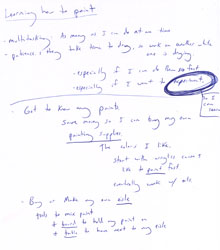 Learning how to paint
- multitasking: As many as I can do at one time
- patience: they take time to dry, so work on another while
one is drying
- especially if I can do them so fast
- especially if I want to experiment,
so I
can
learn
- Get to know my paints
Save money so I can buy my own
painting supplies
The colors I like
start with
like to paint first
eventually work w/ oils
- Buy or Make my own easle
tools to mix paint
* to hold my paint on
* table to have next to my easle